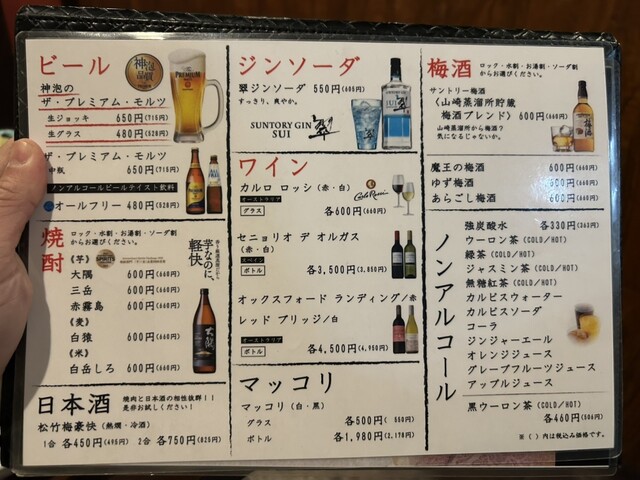 ビール
神泡
品質
神泡の
ザ・プレミアム・モルツ
生ジョッキ 650円(715円)
生グラス 480円(528円)
ザ・プレミアム・モルツ
中瓶 650円(715円)
ノンアルコールビールテイスト飲料
オールフリー 480円(528円)
焼酎
ロック・水割・お湯割・ソーダ割
からお選びください。
《芋》
大隅 600円(660円)
三岳 600円(660円)
赤霧島 600円(660円)
《麦》
白猿 600円(660円)
《米》
白岳しろ 600円(660円)
芋なのに、
軽快
日本酒
焼肉と日本酒の相性抜群!!
是非お試しください!
松竹梅豪快(熱燗・冷酒)
1合 各450円(495円) 2合 各750円(825円)
ジンソーダ
翠ジンソーダ 550円(605円)
すっきり、爽やか。
SUNTORY GIN
SUI 翠
ワイン
カルロ ロッシ(赤・白)
オーストラリア
グラス 各600円(660円)
Carlo Rossi
セニョリオ デ オルガス
(赤・白)
スペイン
ボトル 各3,500円(3,850円)
オックスフォード ランディング/赤
レッド ブリッジ/白
オーストラリア
ボトル 各4,500円(4,950円)
マッコリ
マッコリ(白・黒)
グラス 各500円( 550円)
ボトル 各1,980円(2,178円)
梅酒
ロック・水割・お湯割・ソーダ割
からお選びください。
サントリー梅酒
〈山崎蒸溜所貯蔵
梅酒ブレンド〉 600円(660円)
山崎蒸溜所から梅酒?
気になるじゃないか。
魔王の梅酒 600円(660円)
ゆず梅酒 600円(660円)
あらごし梅酒 600円(660円)
ノンアルコール
強炭酸水 各330円(363円)
ウーロン茶(COLD/HOT)
緑茶(COLD/HOT)
ジャスミン茶(COLD/HOT)
無糖紅茶(COLD/HOT)
カルピスウォーター
カルピスソーダ
コーラ
ジンジャーエール
オレンジジュース
グレープフルーツジュース
アップルジュース
黒ウーロン茶(COLD/HOT)
各460円(506円)
※( )内は税込み価格です。